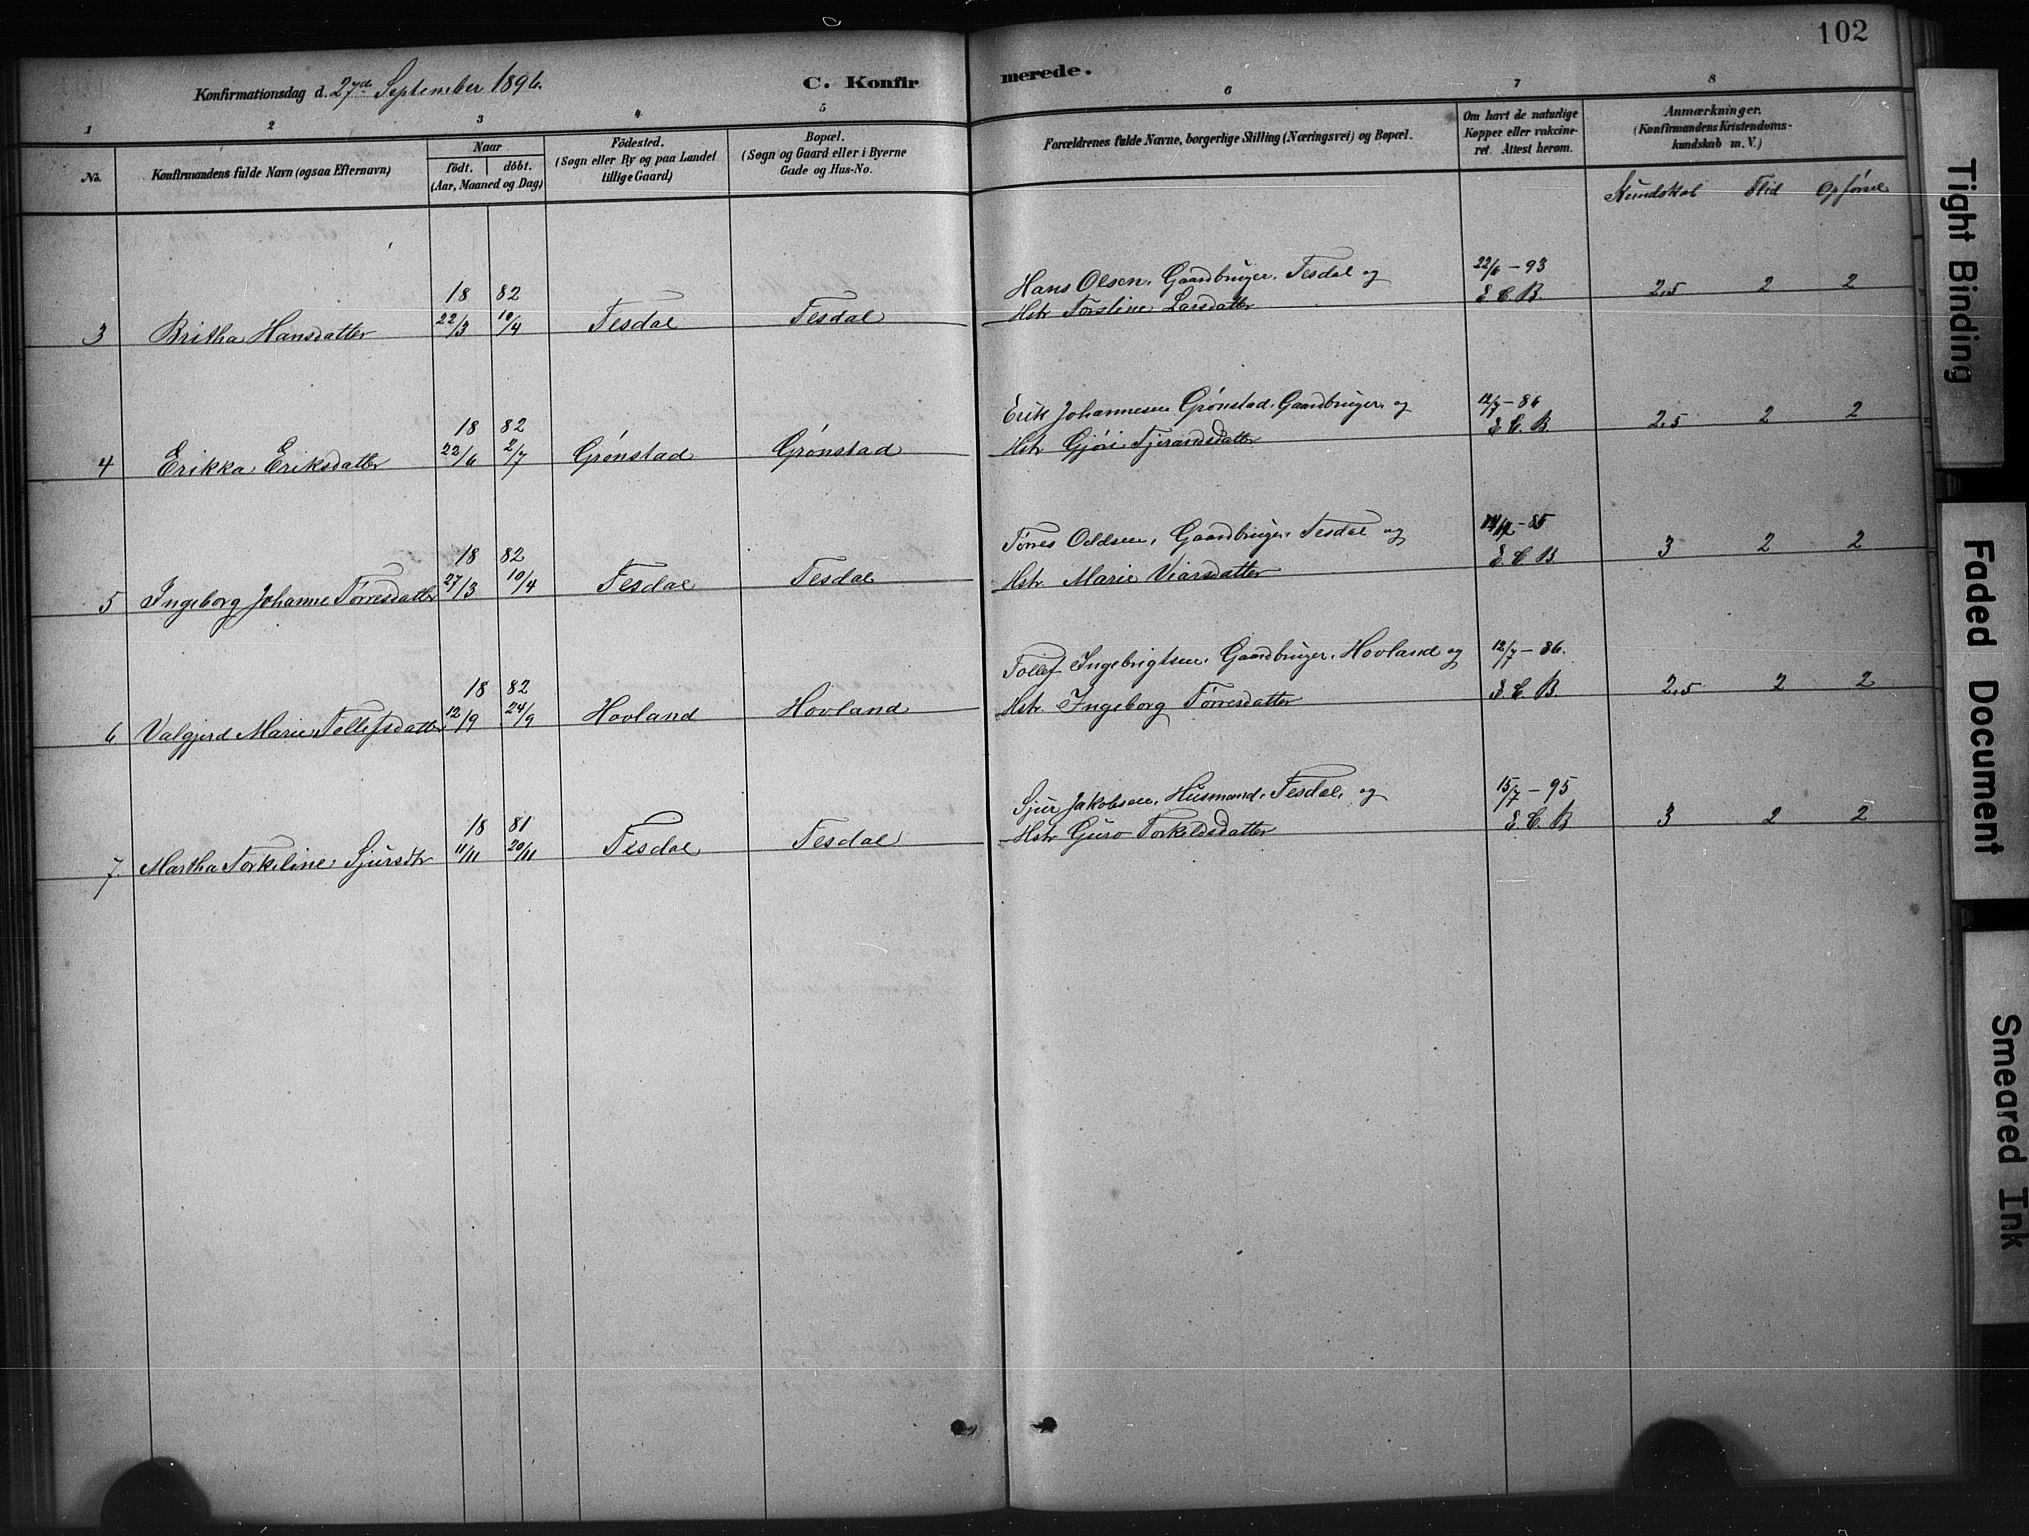 102
Konfirmationsdag d. 27de September 1896.
C. Konfirmerede.
1 2 3 4 5 6 7 8
No.
Konfirmandens fulde Navn (ogsaa Efternavn)
Naar
födt. döbt.
(Aar, Maaned og Dag)
Födested.
(Sogn eller By og paa Landet
tillige Gaard)
Bopæl.
(Sogn og Gaard eller i Byerne
Gade og Hus-No.
Forældrenes fulde Navne, borgerlige Stilling (Næringsvei) og Bopæl.
Om havt de naturlige
Kopper eller vakcine-
ret. Attest herom.
Anmærkninger.
(Konfirmandens Kristendoms-
kundskab m. V.)
Kundskab Flid Opførsel
18 82 Hans Olsen, Gaardbruger, Tesdal og 22/6 - 93
3 Britha Hansdatter 22/3 10/4 Tesdal Tesdal Hstr Torstine Larsdatter E C B. 2,5 2 2
18 82 Erik Johannesen Grønstad, Gaardbruger, og 12/7 - 86
4 Erikka Eriksdatter 22/6 2/7 Grønstad Grønstad Hstr Gjøri Tjerandsdatter E C. B. 2,5 2 2
18 82 Tørres Oddsen, Gaardbruger, Tesdal og - 85
5 Ingeborg Johanne Tørresdatter 27/3 10/4 Tesdal Tesdal Hstr. Marie Viarsdatter E C B 3 2 2
18 82 Tollef Ingebrigtsen, Gaardbruger, Hovland og 12/7 - 86.
6 Valgjerd Marie Tollefsdatter 12/9 24/9 Hovland Hovland Hstr. Ingeborg Tørresdatter E. C. B 2,5 2 2
18 81 Sjur Jakobsen, Husmand, Tesdal, og 15/7 - 95
7. Martha Torkeline Sjursdtr 11/11 20/11 Tesdal Tesdal Hstr Guro Torkeldsdatter E. C. B 3 2 2
Tight Binding
Faded Document
Smeared Ink